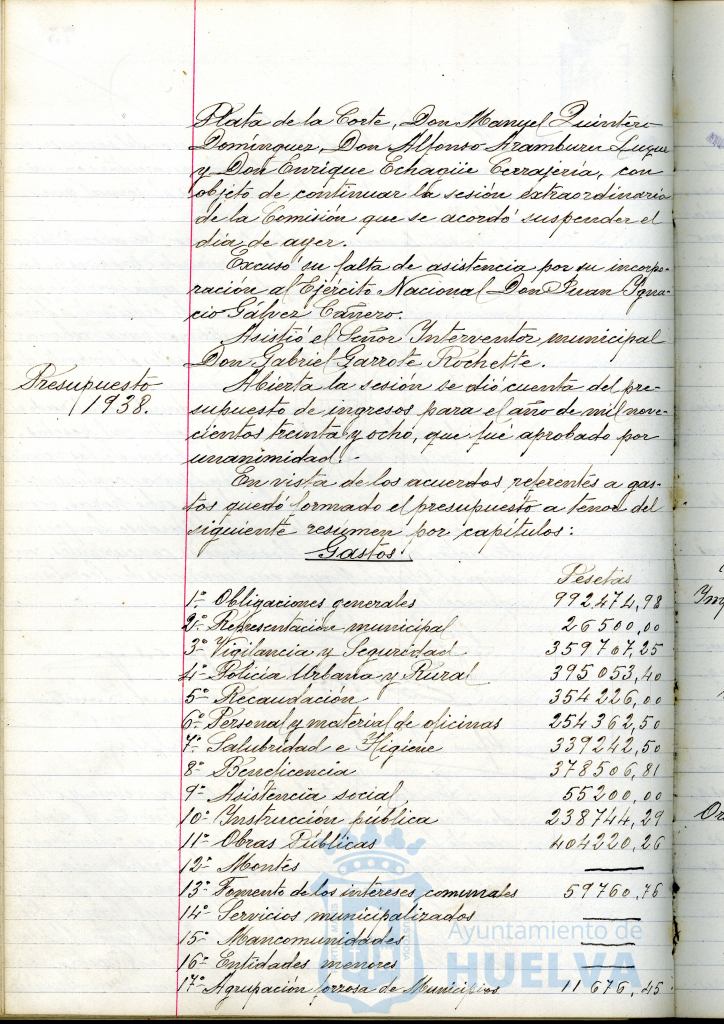 Plata de la Corte, Don Manuel Quintero
Domínguez, Don Alfonso Aramburu Luque
y Don Enrique Echagüe Cerrajería, con
objeto de continuar la sesión extraordinaria
de la Comisión que se acordó suspender el
día de ayer.
Excusó su falta de asistencia por su incorpo-
ración al Ejército Nacional Don Juan Igna-
cio Gálvez Cañero.
Asistió el Señor Interventor municipal
Don Gabriel Garrote Rochette.
Presupuesto
1938.
Abierta la sesión se dió cuenta del pre-
supuesto de ingresos para el año de mil nove-
cientos treinta y ocho, que fué aprobado por
unanimidad.
En vista de los acuerdos referentes a gas-
tos quedó formado el presupuesto a tenor del
siguiente resumen por capítulos:
Gastos
Pesetas
1º Obligaciones generales 992474,98
2º Representación municipal 26500,00
3º Vigilancia y Seguridad 359767,25
4º Policía Urbana y Rural 395053,40
5º Recaudación 354226,00
6º Personal y material de oficinas 254362,50
7º Salubridad e Higiene 339242,50
8º Beneficencia 378506,81
9º Asistencia social 55200,00
10º Instrucción pública 238744,29
11º Obras Públicas 404220,26
12º Montes —
13º Fomento de los intereses comunales 59760,76
14º Servicios municipalizados —
15º Mancomunidades —
16º Entidades menores —
17º Agrupación forzosa de Municipios 11676,45
Ayuntamiento de
HUELVA